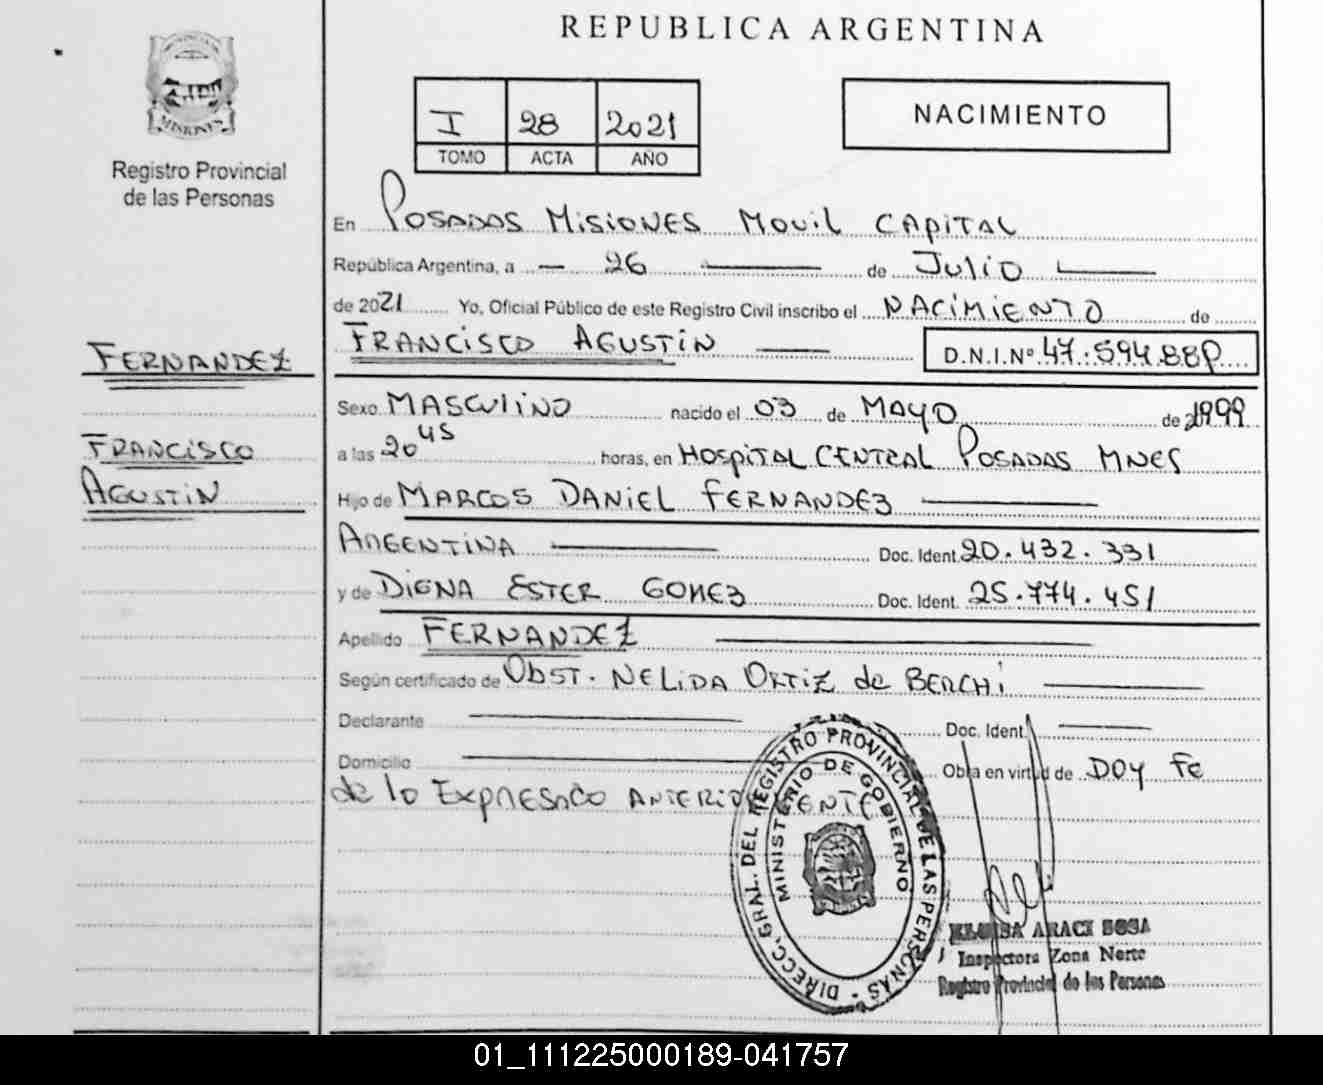 MISIONES
Registro Provincial
de las Personas
FERNANDEZ
FRANCISCO
AGUSTIN
REPUBLICA ARGENTINA
I 28 2021
TOMO ACTA AÑO
NACIMIENTO
En POSADAS MISIONES MOVIL CAPITAL
República Argentina, a 26 de JULIO
de 2021 Yo, Oficial Público de este Registro Civil inscribo el NACIMIENTO de
FRANCISCO AGUSTIN D.N.I.Nº 47.594.88
Sexo MASCULINO nacido el 03 de MAYO de 1999
a las 20 45 horas, en HOSPITAL CENTRAL POSADAS MNES
Hijo de MARCOS DANIEL FERNANDEZ
ARGENTINA Doc. Ident. 20.432.331
y de DIGNA ESTER GOMEZ Doc. Ident. 25.774.451
Apellido FERNANDEZ
Según certificado de Obst. NELIDA ORTIZ de BERCHI
Declarante Doc. Ident.
Domicilio Obra en virtud de DOY Fe
de lo EXPRESADO ANTERIORMENTE
DIRECC. GRAL. DEL REGISTRO PROVINCIAL DE LAS PERSONAS
MINISTERIO DE GOBIERNO
ARACI SOSA
Inspectora Zona Norte
Registro Provincial de las Personas
01_111225000189-041757